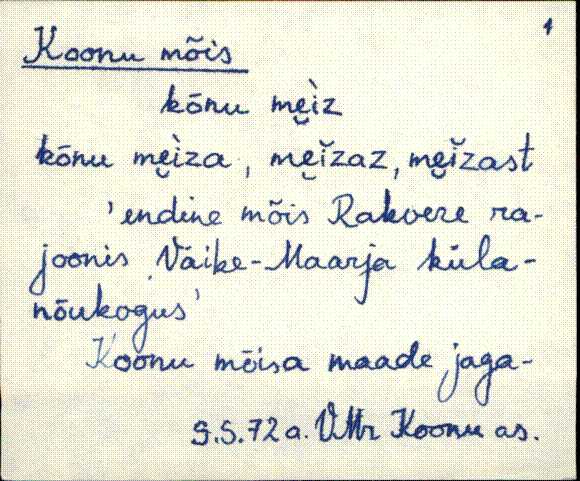 1
Koonu mõis
kōnu me̮ìz
kōnu me̮ìza, me̮ĭzaz, me̮ĭzast
'endine mõis Rakvere ra-
joonis Väike-Maarja küla-
nõukogus'
Koonu mõisa maade jaga-
S.S.72 a. VMr Koonu as.